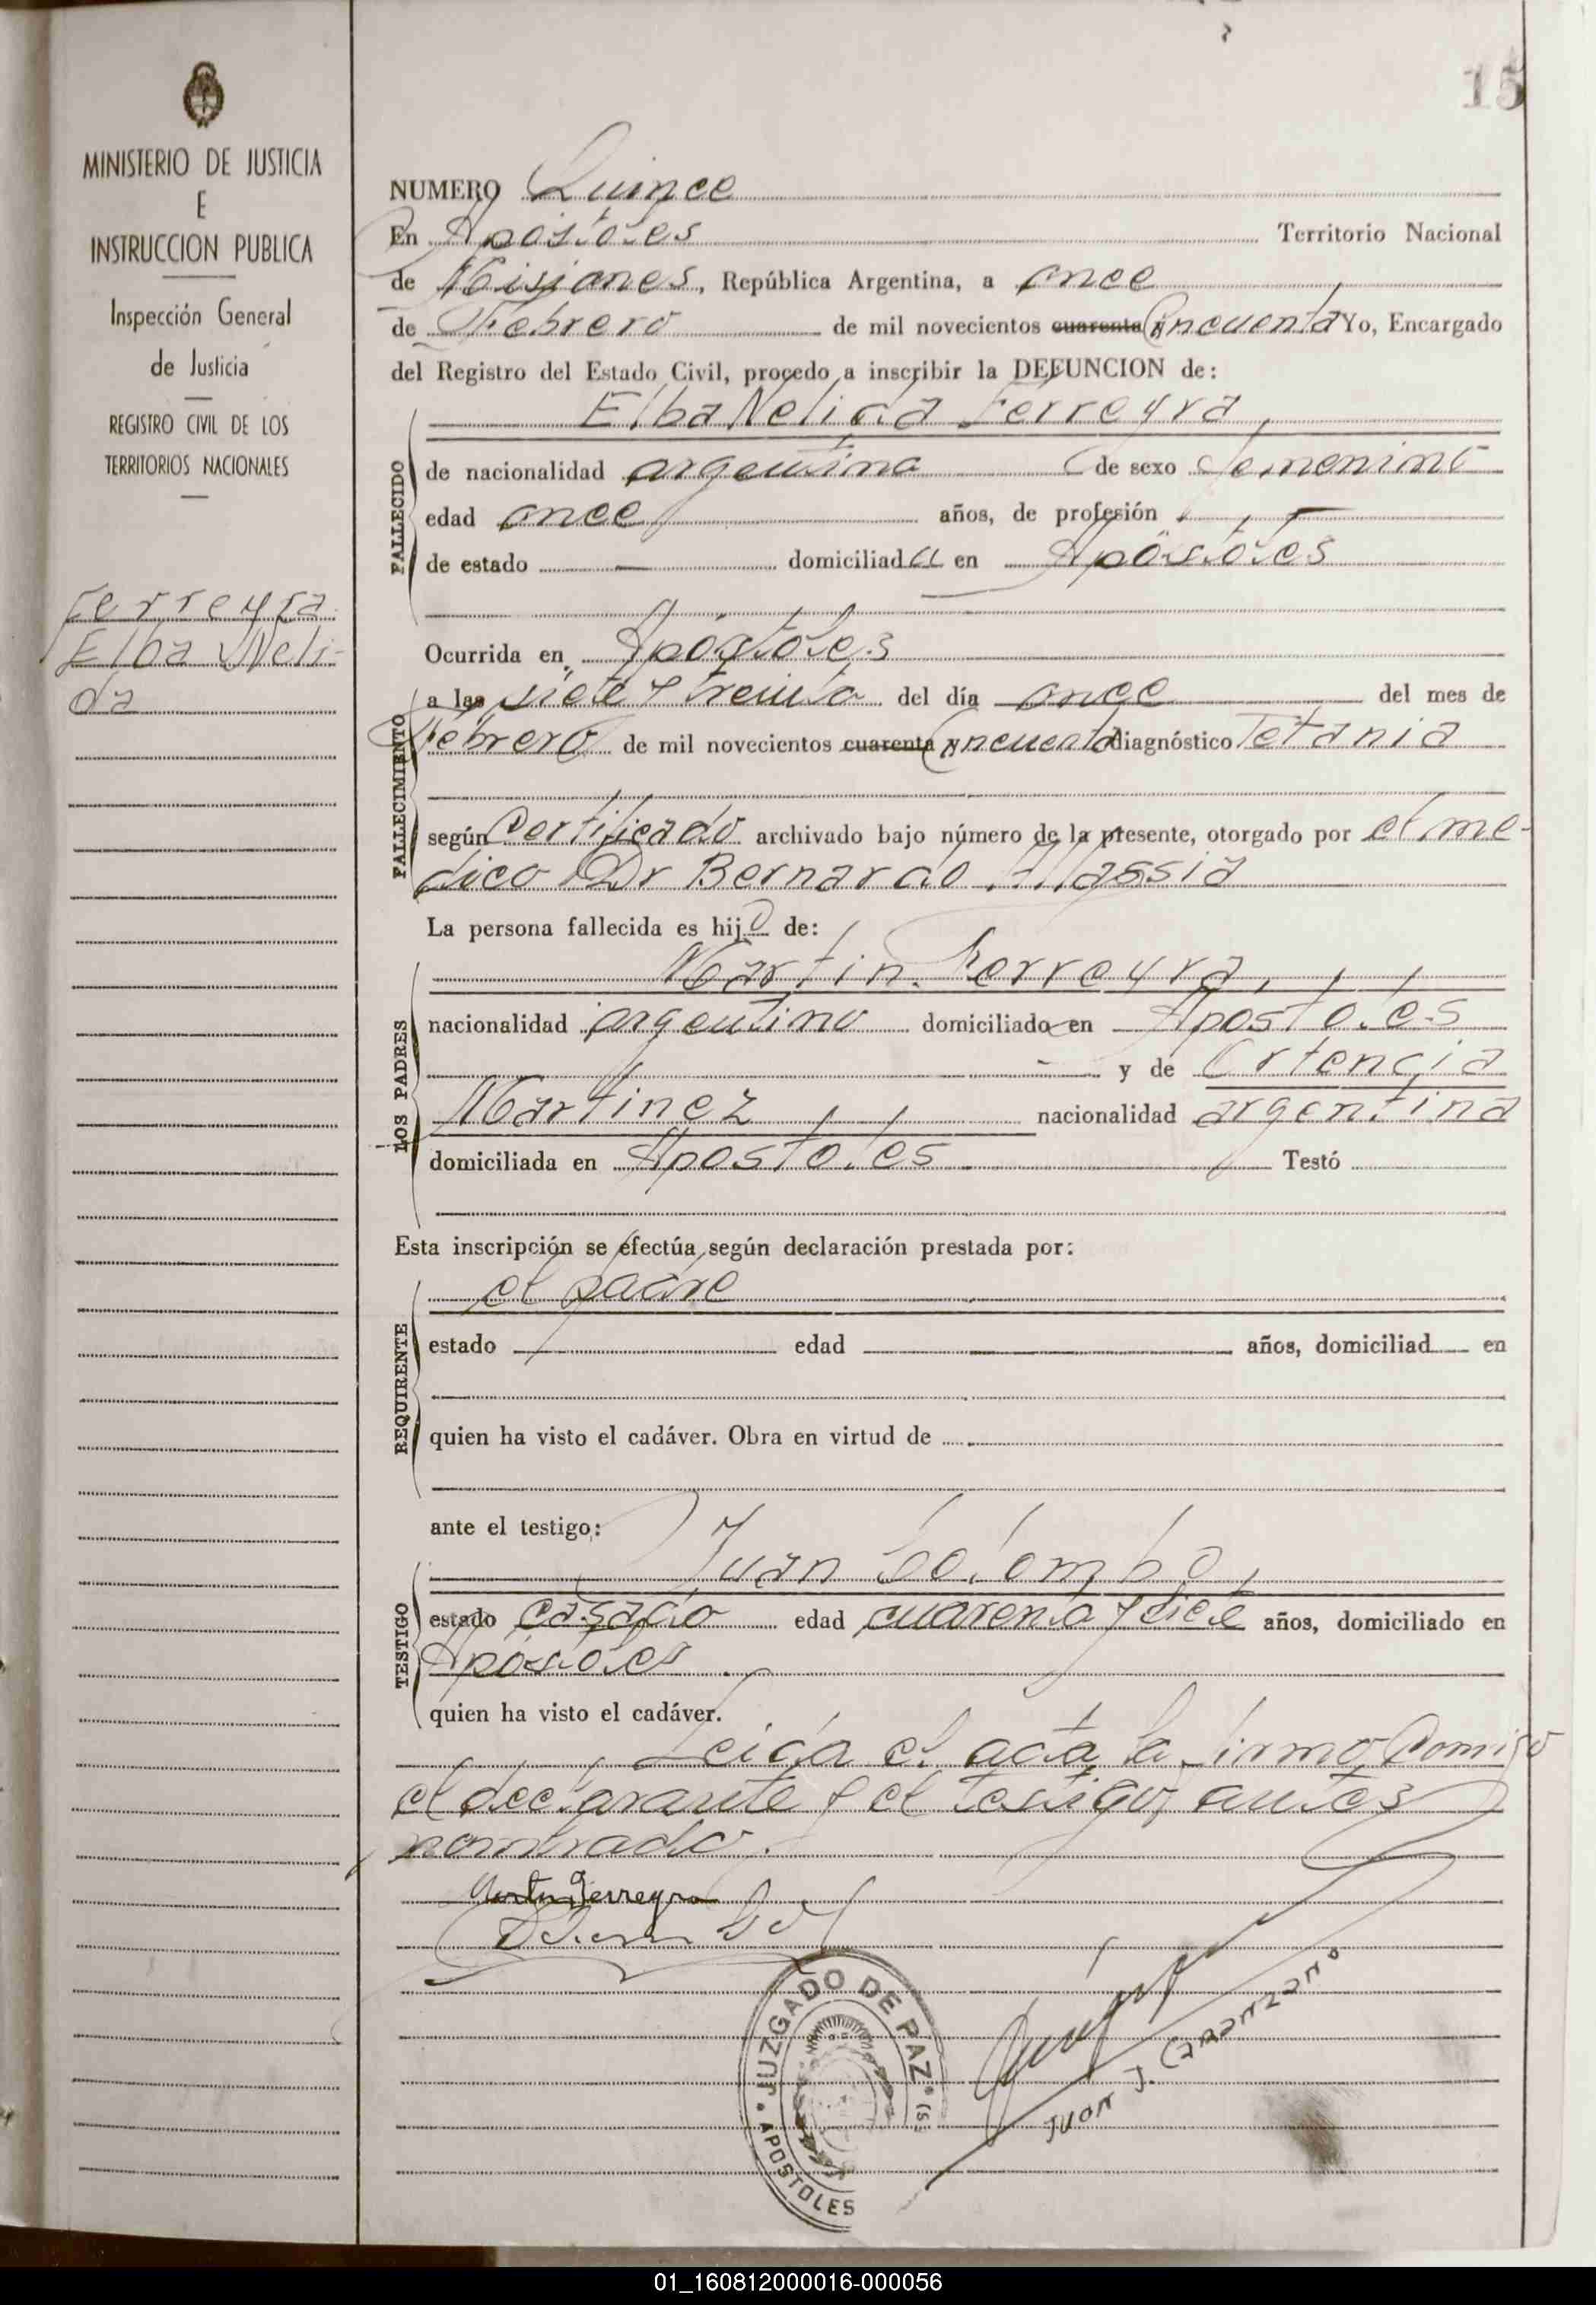 15
MINISTERIO DE JUSTICIA
E
INSTRUCCION PUBLICA
Inspección General
de Justicia
REGISTRO CIVIL DE LOS
TERRITORIOS NACIONALES
Ferreyra
Elba Neli-
da
NUMERO Quince
En Apóstoles Territorio Nacional
de Misiones, República Argentina, a once
de Febrero de mil novecientos cuarenta y cincuenta Yo, Encargado
del Registro del Estado Civil, procedo a inscribir la DEFUNCION de:
Elba Nelida Ferreyra
FALLECIDO
de nacionalidad argentina de sexo femenino
edad once años, de profesión
de estado — domiciliada en Apóstoles
Ocurrida en Apóstoles
FALLECIMIENTO
a las siete y treinta del día once del mes de
Febrero de mil novecientos cuarenta y cincuenta diagnóstico Tetania
según Certificado archivado bajo número de la presente, otorgado por el me-
dico Dr Bernardo Massia
La persona fallecida es hijo de:
LOS PADRES
Martin Ferreyra
nacionalidad argentino domiciliado en Apostoles
y de Ortencia
Martinez nacionalidad argentina
domiciliada en Apostoles Testó
Esta inscripción se efectúa según declaración prestada por:
REQUIRENTE
el padre
estado edad años, domiciliad en
quien ha visto el cadáver. Obra en virtud de
ante el testigo:
TESTIGO
Juan
estado casado edad cuarenta y siete años, domiciliado en
Apóstoles
quien ha visto el cadáver.
Leida el acta la firmo Comigo
el declarante y el testigo antes
nombrado.
Martin Ferreyra
JUZGADO DE PAZ
APOSTOLES
JUAN J.
01_160812000016-000056